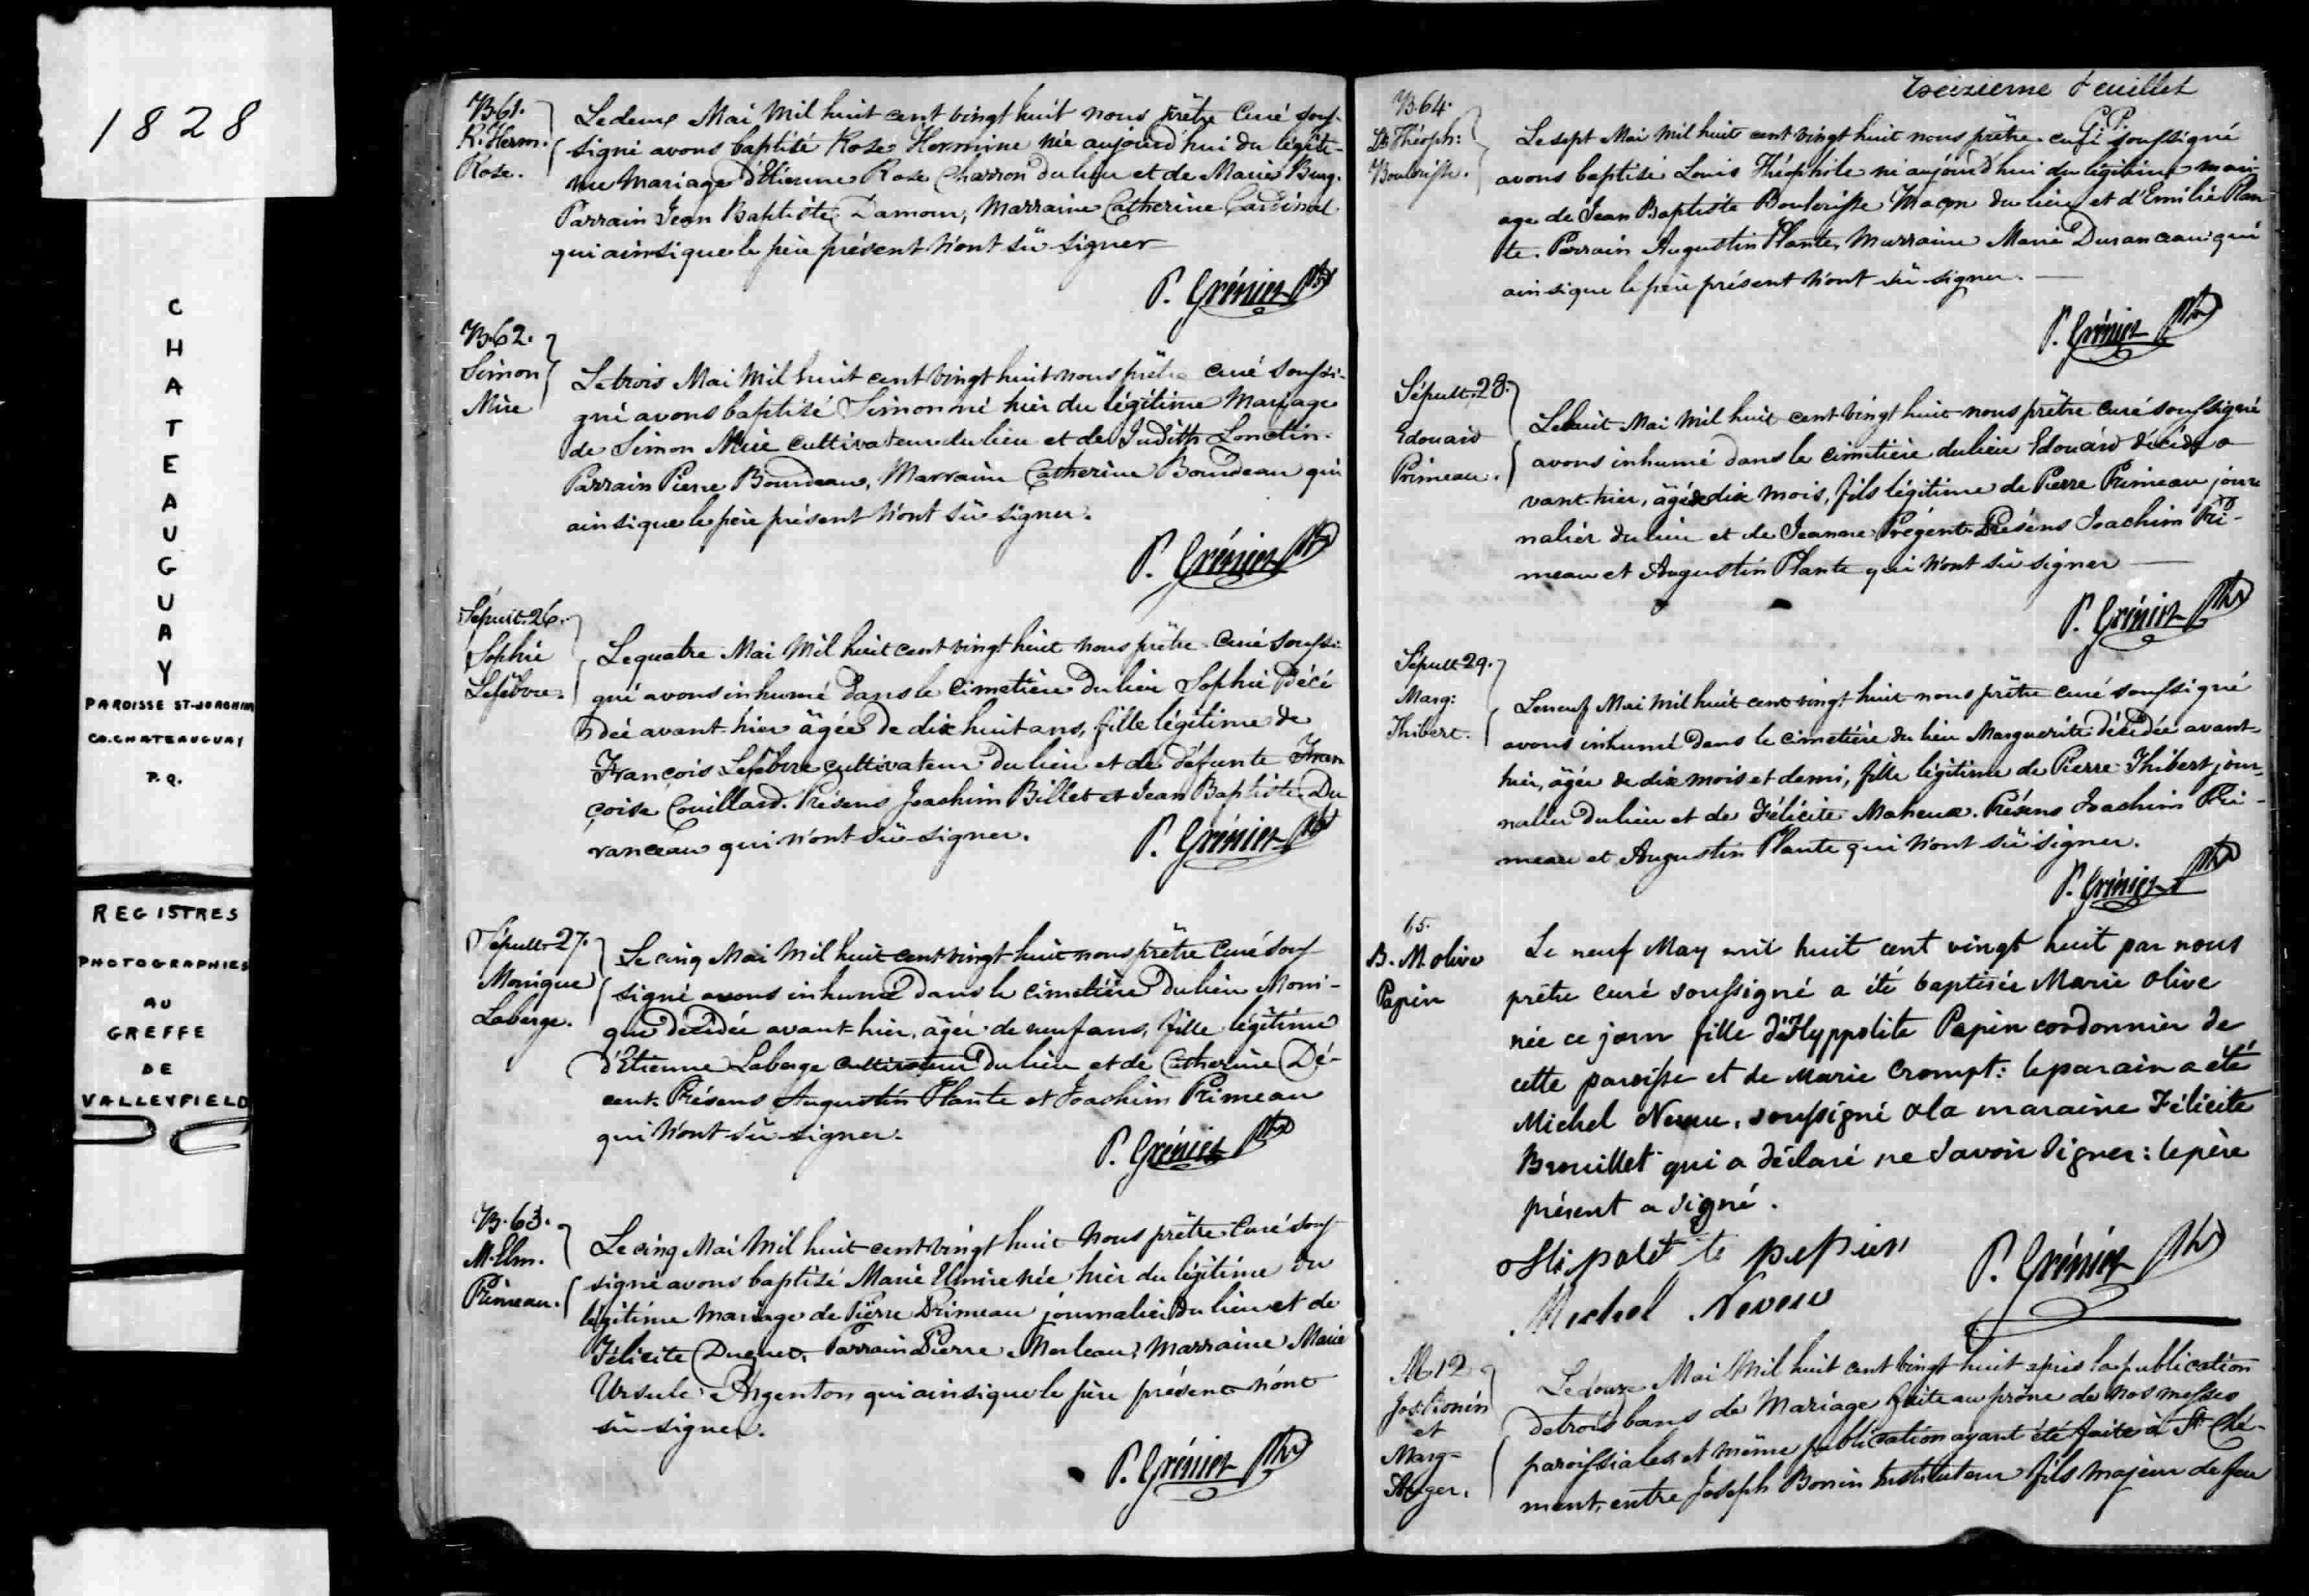 1828
CHATEAUGUAY
PAROISSE ST-JOACHIM
CO. CHATEAUGUAY
P.Q.
REGISTRES
PHOTOGRAPHIES
AU
GREFFE
DE
VALLEYFIELD
B.61.
R. Herm.
Rose.
Le deux Mai Mil huit cent vingt huit nous prêtre Curé sous-
signé avons baptisé Rose Hermine née aujourd'hui du légiti-
me Mariage d'Etienne Rose Charron du lieu et de Marie Burg.
Parrain Jean Baptiste Damour, Marraine Catherine Cardinal
qui ainsi que le père présent n'ont sû signer
P. Grénier Ptre
B.62.
Simon
Mire
Le trois Mai Mil huit cent vingt huit nous prêtre curé soussi-
gné avons baptisé Simon né hier du légitime Mariage
de Simon Mire cultivateur du lieu et de Judith Lonctin.
Parrain Pierre Bourdeau, Marraine Catherine Bourdeau qui
ainsi que le père présent n'ont sû signer.
P. Grénier Ptre
Sépult. 26.
Sophie
Lefebvre.
Le quatre Mai Mil huit cent vingt huit nous prêtre curé soussi-
gné avons inhumé dans le Cimetière du lieu Sophie décé
dée avant hier âgée de dix huit ans, fille légitime de
François Lefebvre cultivateur du lieu et de défunte Fran
çoise Couillard. Présens Joachim Billet et Jean Baptiste Du
ranceau qui n'ont sû signer.
P. Grénier Ptre
Sépult. 27.
Monique
Laberge.
Le cinq Mai Mil huit cent vingt huit nous prêtre Curé sous
signé avons inhumé dans le cimetière du lieu Moni-
que décédée avant-hier, âgée de neuf ans, fille légitime
d'Etienne Laberge cultivateur du lieu et de Catherine Dé-
cent. Présens Augustin Plante et Joachim Primeau
qui n'ont sû signer.
P. Grénier Ptre
B.63.
M. Elm.
Primeau.
Le cinq Mai Mil huit cent vingt huit Nous prêtre Curé sous
signé avons baptisé Marie Elmire née hier du légitime du
légitime mariage de Pierre Primeau journalier du lieu et de
Félicité Duquet. Parrain Pierre Merleau, Marraine Marie
Ursule Argenton qui ainsi que le père présent n'ont
sû signer.
P. Grénier Ptre
treizieme feuillet
P.P.
B.64.
Ls Théoph:
Boulerisse.
Le sept Mai Mil huit cent vingt huit nous prêtre curé soussigné
avons baptisé Louis Théophile né aujourd'hui du légitime mari-
age de Jean Baptiste Boulerisse Maçon du lieu et d'Emilie Plan
te. Parrain Augustin Plante, Marraine Marie Duranceau qui
ainsi que le père présent n'ont sû signer.
P. Grénier Ptre
Sépult. 28.
Edouard
Primeau.
Le huit Mai Mil huit cent vingt huit nous prêtre curé soussigné
avons inhumé dans le cimetière du lieu Edouard décédé a
vant-hier, âgé de dix mois, fils légitime de Pierre Primeau jour
nalier du lieu et de Jeanne Prégent. Présens Joachim Pri-
meau et Augustin Plante qui n'ont sû signer
P. Grénier Ptre
Sépult. 29.
Marg:
Thibert.
Le neuf Mai Mil huit cent vingt huit nous prêtre curé soussigné
avons inhumé dans le cimetière du lieu Marguerite décédée avant-
hier, âgée de dix mois et demi, fille légitime de Pierre Thibert jour-
nalier du lieu et de Félicité Maheux. Présens Joachim Pri-
meau et Augustin Plante qui n'ont sû signer.
P. Grénier Ptre
65.
B. M. olive
Papin
Le neuf May mil huit cent vingt huit par nous
prêtre curé soussigné a été baptisée Marie olive
née ce jour fille d'Hyppolite Papin cordonnier de
cette paroisse et de Marie Crompt: le parain a été
Michel Neveu, soussigné & la maraine Félicité
Brouillet qui a déclaré ne savoir signer: le père
présent a signé.
P. Grénier Ptre
Michel Neveu
M.12
Jos. Bonin
et
Marg-
Auger.
Le douze Mai Mil huit cent vingt huit après la publication
de trois bans de Mariage faite au prône de nos messes
paroissiales et même publication ayant été faite à St Clé-
ment, entre Joseph Bonin Instituteur fils majeur de feu